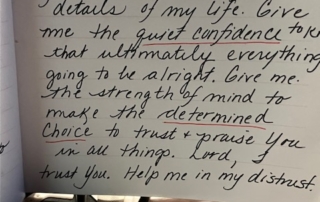 details of my life. Give
me the quiet confidence to kn
that ultimately everything
going to be alright. Give me
the strength of mind to
make the determined
choice to trust + praise You
in all things. Lord, I
trust You. Help me in my distrust.